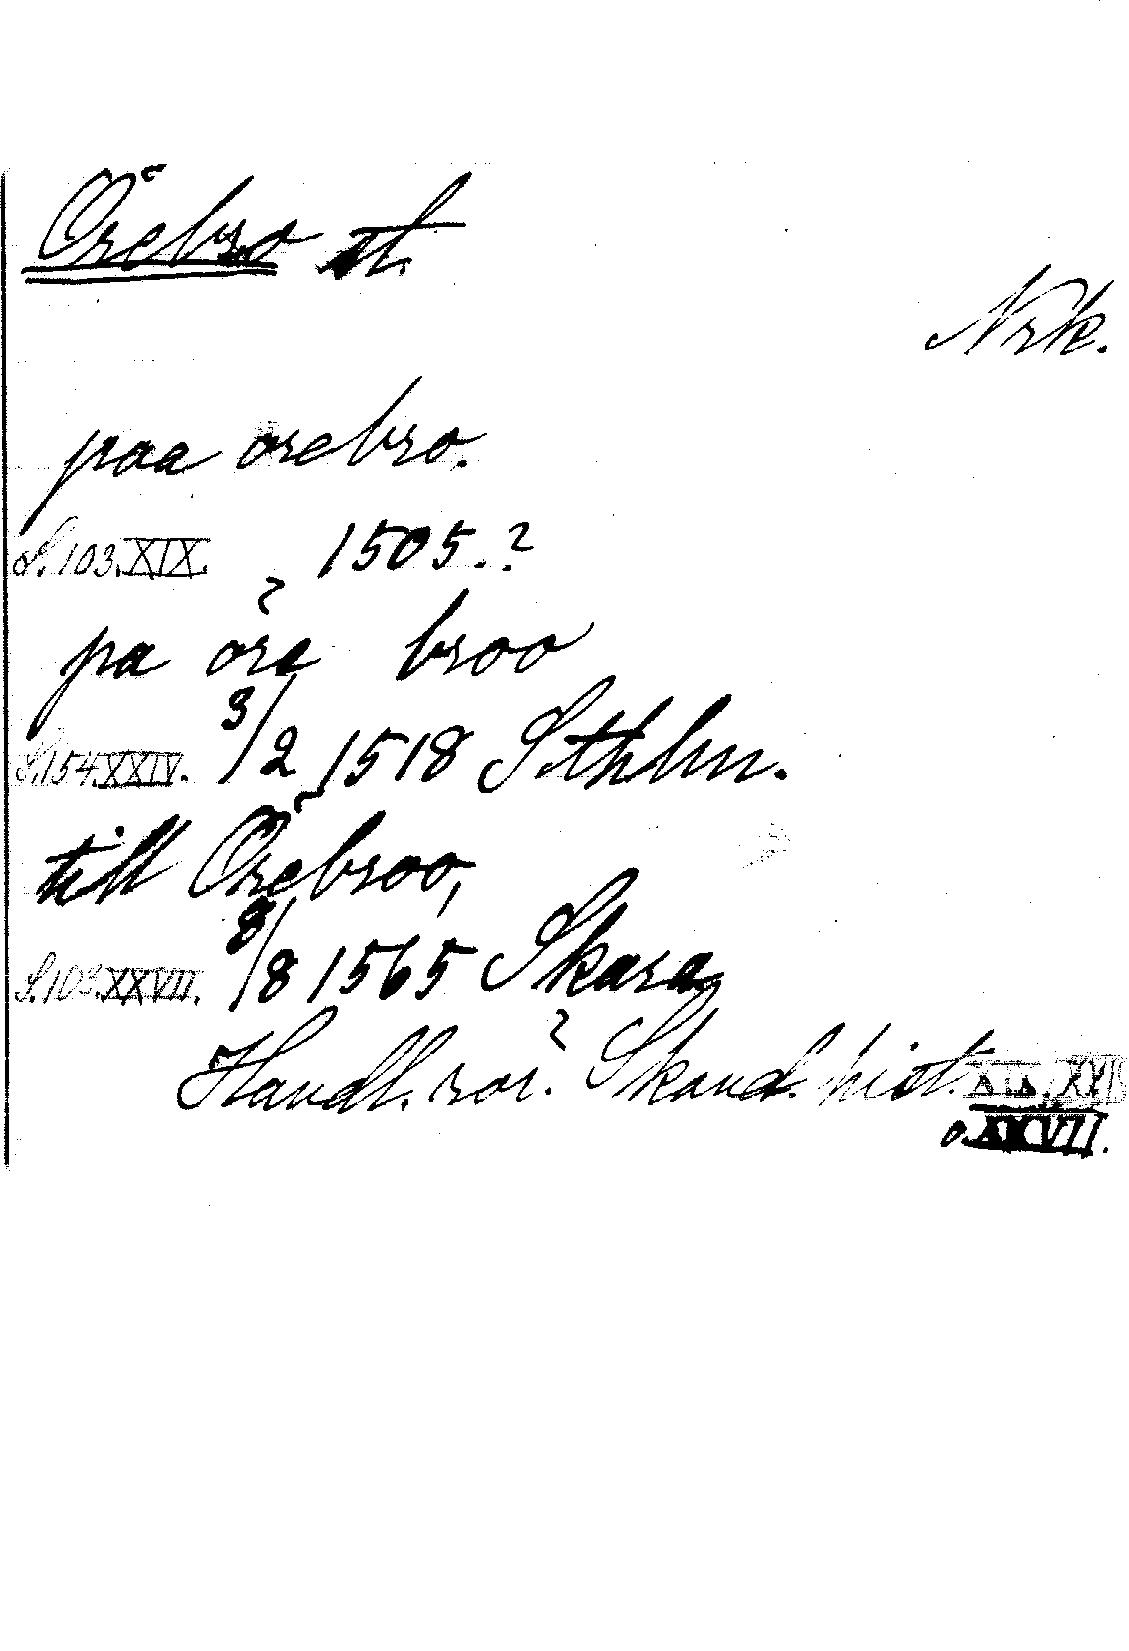 Örebro st.
Nrk.
paa örebro.
S.103.XIX. 1505.?
pa öre broo
S.154.XXIV. 3/2 1518 Sthlm.
till Örebroo,
S.103.XXVII. 8/8 1565 Skara
Handl. rör. Skand. hist. XIX,
o. XXVII.